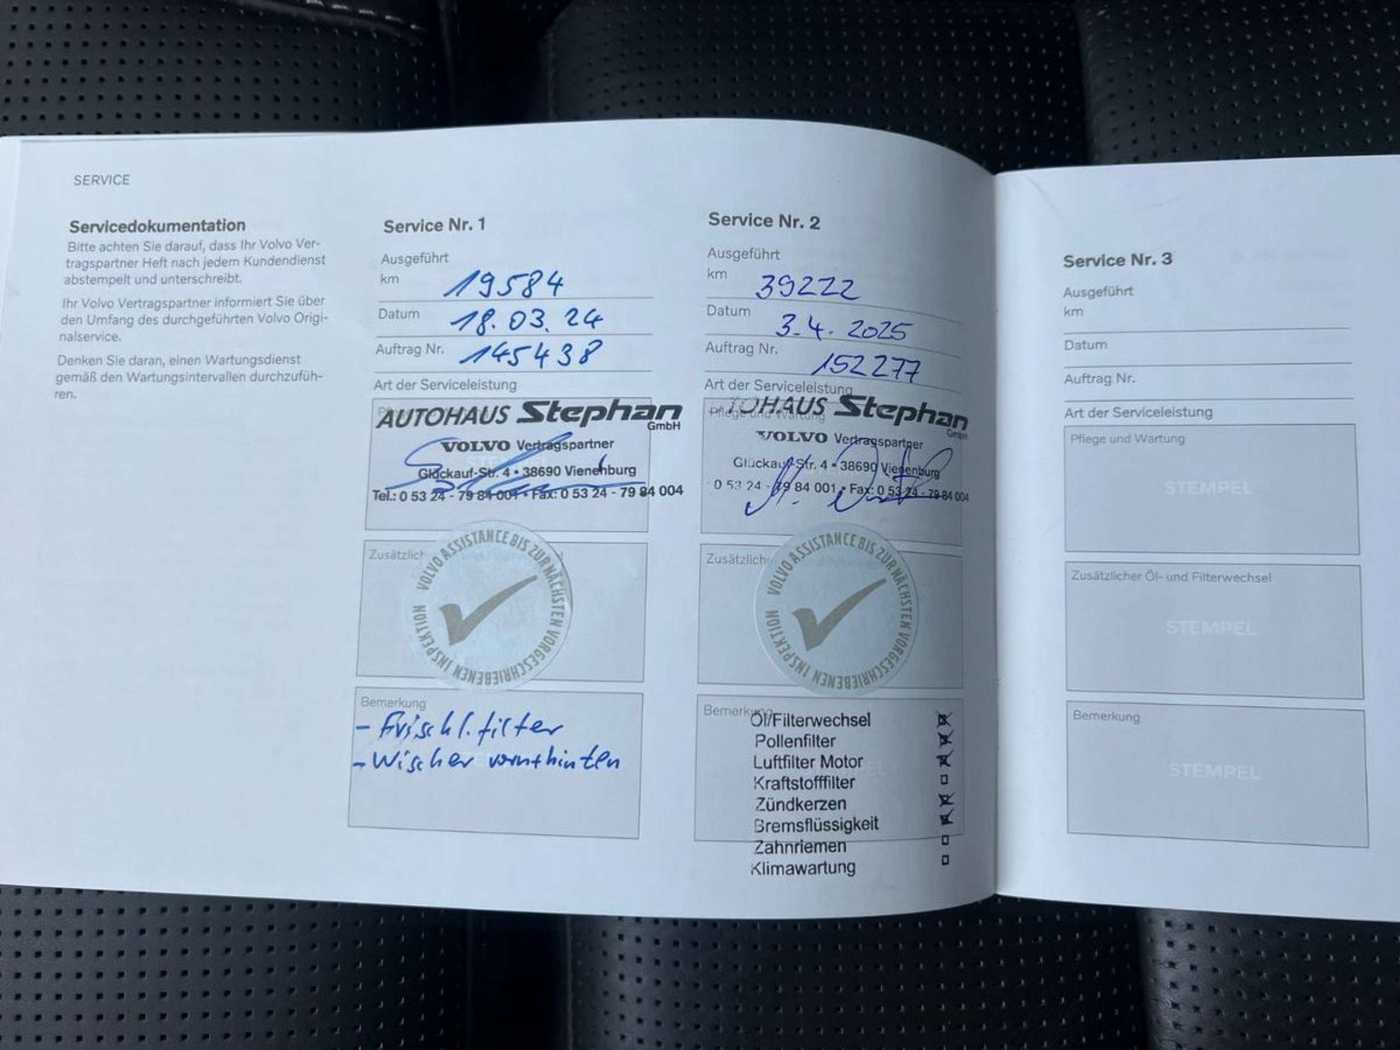 SERVICE
Servicedokumentation
Bitte achten Sie darauf, dass Ihr Volvo Ver-
tragspartner Heft nach jedem Kundendienst
abstempelt und unterschreibt.
Ihr Volvo Vertragspartner informiert Sie über
den Umfang des durchgeführten Volvo Origi-
nalservice.
Denken Sie daran, einen Wartungsdienst
gemäß den Wartungsintervallen durchzufüh-
ren.
Service Nr. 1
Ausgeführt
km 19584
Datum 18.03.24
Auftrag Nr. 145438
Art der Serviceleistung
AUTOHAUS Stephan
GmbH
VOLVO Vertragspartner
Glückauf-Str. 4 • 38690 Vienenburg
Tel.: 0 53 24 - 79 84 001 • Fax: 0 53 24 - 79 84 004
Zusätzlich
VOLVO ASSISTANCE BIS ZUR NÄCHSTEN VORGESCHRIEBENEN INSPEKTION
Bemerkung
- Frischl.filter
- Wischer vorn+hinten
Service Nr. 2
Ausgeführt
km 39222
Datum 3.4.2025
Auftrag Nr. 152277
Art der Serviceleistung
Pflege und Wartung
TOHAUS Stephan
GmbH
VOLVO Vertragspartner
Glückauf-Str. 4 • 38690 Vienenburg
0 53 24 - 79 84 001 • Fax: 0 53 24 - 79 84 004
Zusätzlich
VOLVO ASSISTANCE BIS ZUR NÄCHSTEN VORGESCHRIEBENEN INSPEKTION
Bemerkung
Öl/Filterwechsel
Pollenfilter
Luftfilter Motor
Kraftstofffilter
Zündkerzen
Bremsflüssigkeit
Zahnriemen
Klimawartung
Service Nr. 3
Ausgeführt
km
Datum
Auftrag Nr.
Art der Serviceleistung
Pflege und Wartung
STEMPEL
Zusätzlicher Öl- und Filterwechsel
STEMPEL
Bemerkung
STEMPEL